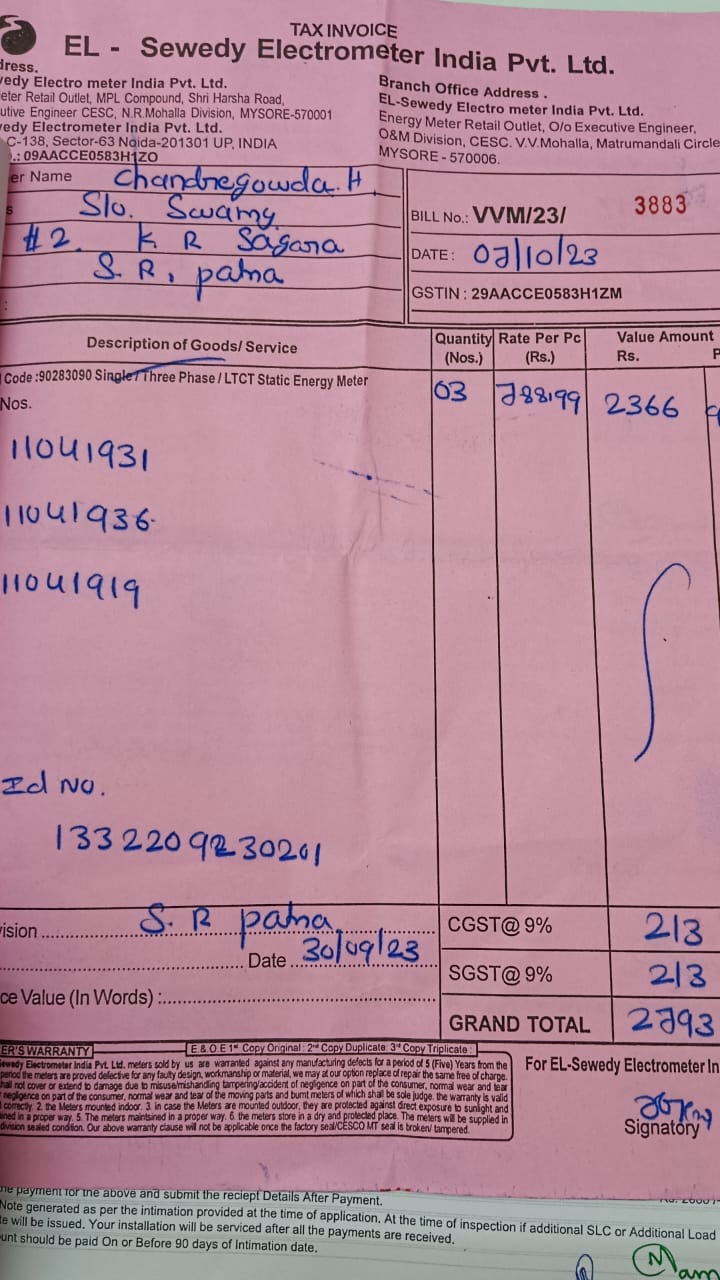 TAX INVOICE
EL - Sewedy Electrometer India Pvt. Ltd.
dress.
vedy Electro meter India Pvt. Ltd.
eter Retail Outlet, MPL Compound, Shri Harsha Road,
utive Engineer CESC, N.R.Mohalla Division, MYSORE-570001
vedy Electrometer India Pvt. Ltd.
C-138, Sector-63 Noida-201301 UP, INDIA
.: 09AACCE0583H1ZO
Branch Office Address .
EL-Sewedy Electro meter India Pvt. Ltd.
Energy Meter Retail Outlet, O/o Executive Engineer,
O&M Division, CESC. V.V.Mohalla, Matrumandali Circle
MYSORE - 570006.
er Name Chandregowda.H
S/o. Swamy
#2. K R Sagara
S. R. patna
BILL No.: VVM/23/ 3883
DATE : 07/10/23
GSTIN : 29AACCE0583H1ZM
Description of Goods/ Service Quantity (Nos.) Rate Per Pc (Rs.) Value Amount Rs. P
Code :90283090 Single / Three Phase / LTCT Static Energy Meter 03 788.99 2366
Nos.
11041931
11041936
11041919
Id No.
1332209230201
ision S. R patna
Date 30/09/23
ce Value (In Words) :
CGST@ 9% 213
SGST@ 9% 213
GRAND TOTAL 2793
ER'S WARRANTY E & O E 1st Copy Original : 2nd Copy Duplicate 3rd Copy Triplicate :
Sewedy Electrometer India Pvt. Ltd. meters sold by us are warranted against any manufacturing defects for a period of 5 (Five) Years from the
period the meters are proved defective for any faulty design, workmanship or material, we may at our option replace of repair the same free of charge.
hall not cover or extend to damage due to misuse/mishandling tampering/accident of negligence on part of the consumer, normal wear and tear
negligence on part of the consumer, normal wear and tear of the moving parts and burnt meters of which shall be sole judge. the warranty is valid
correctly. 2. the Meters mounted indoor. 3. in case the Meters are mounted outdoor, they are protected against direct exposure to sunlight and
ined in a proper way. 5. The meters maintained in a proper way. 6. the meters store in a dry and protected place. The meters will be supplied in
division sealed condition. Our above warranty clause will not be applicable once the factory seal/CESCO MT seal is broken/ tampered.
For EL-Sewedy Electrometer In
Signatory
he payment for the above and submit the reciept Details After Payment.
Note generated as per the intimation provided at the time of application. At the time of inspection if additional SLC or Additional Load
e will be issued. Your installation will be serviced after all the payments are received.
unt should be paid On or Before 90 days of Intimation date.
Mam